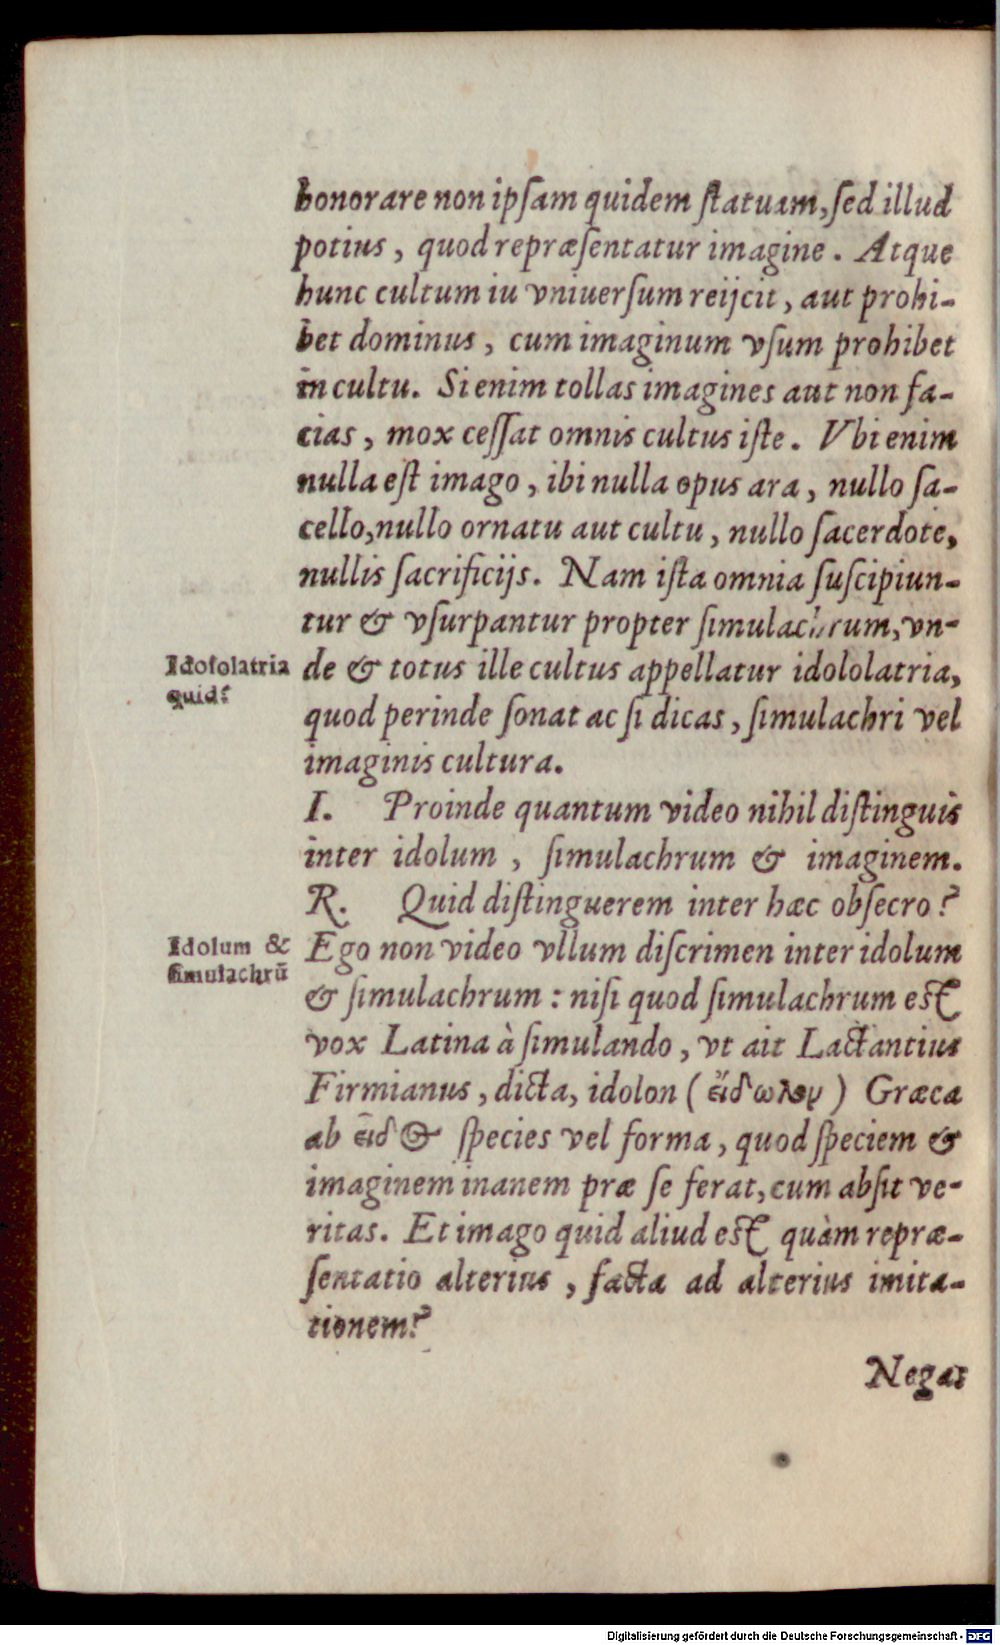 honorare non ipſam quidem ſtatuam, ſed illud
potius, quod repræſentatur imagine. Atque
hunc cultum iu vniuerſum reijcit, aut prohi-
bet dominus, cum imaginum vſum prohibet
in cultu. Si enim tollas imagines aut non fa-
cias, mox ceſſat omnis cultus iſte. Vbi enim
nulla eſt imago, ibi nulla opus ara, nullo ſa-
cello, nullo ornatu aut cultu, nullo ſacerdote,
nullis ſacrificijs. Nam iſta omnia ſuſcipiun-
tur & vſurpantur propter ſimulachrum, vn-
Idololatria
quid?
de & totus ille cultus appellatur idololatria,
quod perinde ſonat ac ſi dicas, ſimulachri vel
imaginis cultura.
I. Proinde quantum video nihil diſtinguis
inter idolum, ſimulachrum & imaginem.
R. Quid diſtinguerem inter hæc obſecro?
Idolum &
ſimulachrū
Ego non video vllum diſcrimen inter idolum
& ſimulachrum: niſi quod ſimulachrum eſt
vox Latina à ſimulando, vt ait Lactantius
Firmianus, dicta, idolon (εἴδωλον) Græca
ab εἶδος ſpecies vel forma, quod ſpeciem &
imaginem inanem præ ſe ferat, cum abſit ve-
ritas. Et imago quid aliud eſt quàm repræ-
ſentatio alterius, facta ad alterius imita-
tionem?
Negas
Digitalisierung gefördert durch die Deutsche Forschungsgemeinschaft - DFG